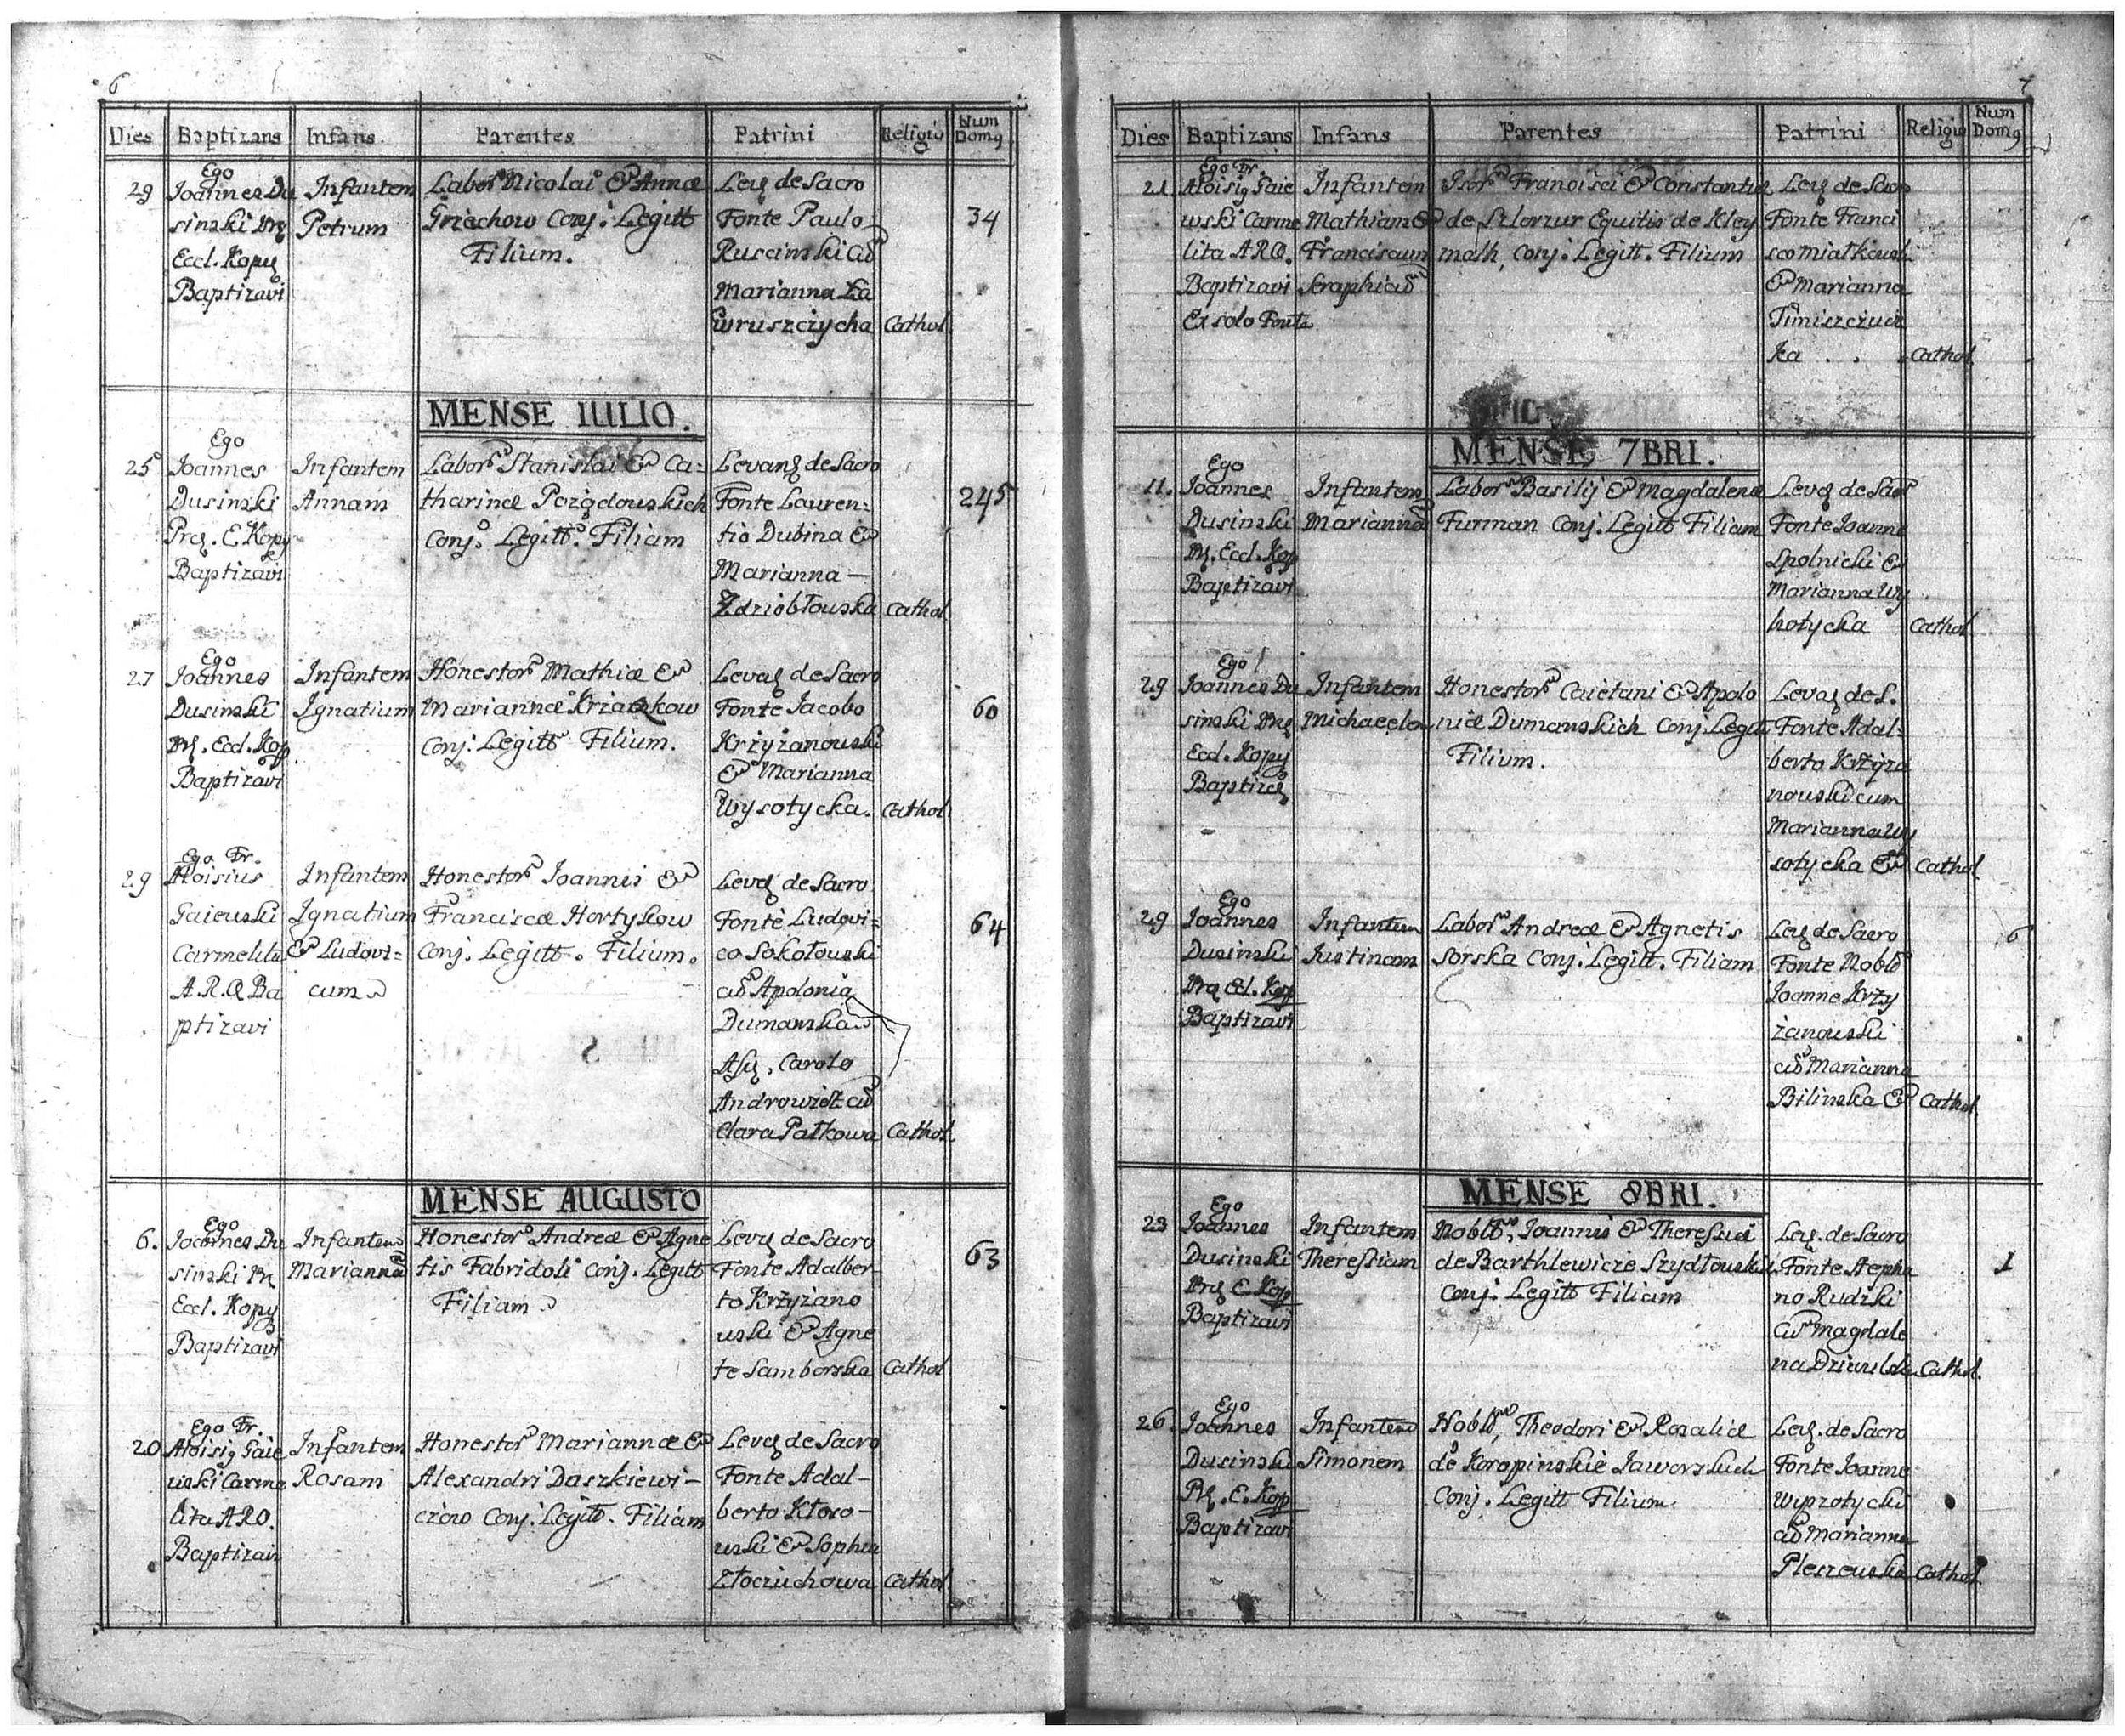 6
Dies Baptizans Infans Parentes Patrini Religio Num Dom9
29
Ego
Joannes Du
sinski Prq
Eccl. Kopy
Baptizavi
Infantem
Petrum
Labor Nicolai & Annæ
Griechow Conj. Legitt
Filium.
Levq de Sacro
Fonte Paulo
Ruscinski cu
Marianna Ła
wruszczycha
Cathol.
34
MENSE IULIO.
25
Ego
Joannes
Dusinski
Prq. E. Kopy
Baptizavi
Infantem
Annam
Labor Stanislai & Ca=
tharinæ Pozodowskich
Conj. Legitt. Filiam
Levanq de Sacro
Fonte Lauren=
tio Dubina &
Marianna —
Zdziobłowska
Cathol
245
27
Ego
Joannes
Dusinski
Prq. Eccl. Kop
Baptizavi
Infantem
Ignatium
Honestor Mathiæ &
Mariannæ Krzakow
Conj. Legitt Filium.
Levaq de Sacro
Fonte Jacobo
Krzyżanowski
& Marianna
Wysotycka.
Cathol
60
29
Ego Fr.
Aloisius
Gaiewski
Carmelita
A. R. O Ba
ptizavi
Infantem
Ignatium
& Ludovi=
cum
Honestor Joannis &
Franciscæ Hortykow
Conj. Legitt. Filium.
Levq de Sacro
Fonte Ludovi=
co Sokołowski
cu Apolonia
Dumanska
Asq. Carolo
Androwicz cu
Clara Pałkowa
Cathol.
64
MENSE AUGUSTO
6.
Ego
Joannes Du
sinski Pr
Eccl. Kopy
Baptizavi
Infantem
Mariannā
Honestor Andreæ & Agne
tis Fabridoli Conj. Legitt
Filiam
Levq de Sacro
Fonte Adalber
to Krzyżano
wski & Agne
te Samborska
Cathol
63
20
Ego Fr.
Aloisiq Gaie
wski Carme
lita ARO.
Baptizavi
Infantem
Rosam
Honestor Mariannæ &
Alexandri Daszkiewi—
czow Conj. Legitt. Filiam
Levq de Sacro
Fonte Adal—
berto Kłoso—
wski & Sophia
Złociuchowa
Cathol.
7
Dies Baptizans Infans Parentes Patrini Religio Num Dom9
21.
Ego Fr
Aloisiq Gaie
wski Carme
lita ARO.
Baptizavi
Ex solo Fonte
Infantem
Mathiam &
Franciscum
Seraphicū
Francisci & Constantiæ
de Equitis de Kley
math, Conj. Legitt. Filium
Levq de Sacro
Fonte Franci
sco Miałkowski
& Marianna
Timiszczuc
ka . .
Cathol
MENSE 7BRI.
11.
Ego
Joannes
Dusinski
Prq. Eccl. Kop
Baptizavi
Infantem
Mariannā
Labor Basilij & Magdalenæ
Furman Conj. Legitt Filiam
Levq de Sacr
Fonte Joanne
Spolnicki &
Marianna Wy
hotycka
Cathol
29
Ego
Joannes Du
sinski Prq
Eccl. Kopy
Baptizq
Infantem
Michaelem
Honestor Caietani & Apolo
niæ Dumanskich Conj. Legitt
Filium.
Levaq de S.
Fonte Adal=
berto Krzyża
nowski cum
Marianna Wy
sotycka &
Cathol
29
Ego
Joannes
Dusinski
Prq Ecl. Kop
Baptizavi
Infantem
Justinam
Labor Andreæ & Agnetis
Sorska Conj. Legitt. Filiam
Levq de Sacro
Fonte Nobl
Joanne Krzy
żanowski
cu Marianna
Bilinska &
Cathol.
6
MENSE 8BRI.
23
Ego
Joannes
Dusinski
Prq E. Kop
Baptizavi
Infantem
Theressiam
Nobl, Joannis & Theressiæ
de Barthlewicze Szydłowskie
Conj. Legitt Filiam
Levq. de Sacro
Fonte Stepha
no Rudzki
cu Magdale
na Dziwulska
Cathol.
1
26
Ego
Joannes
Dusinski
Prq. E. Kop
Baptizavi
Infantem
Simonem
Nobl, Theodori & Rosaliæ
de Koropinskie Jaworskich
Conj. Legitt Filium.
Levq. de Sacro
Fonte Joanne
Wyzotycki
cu Marianna
Pleszewska
Cathol